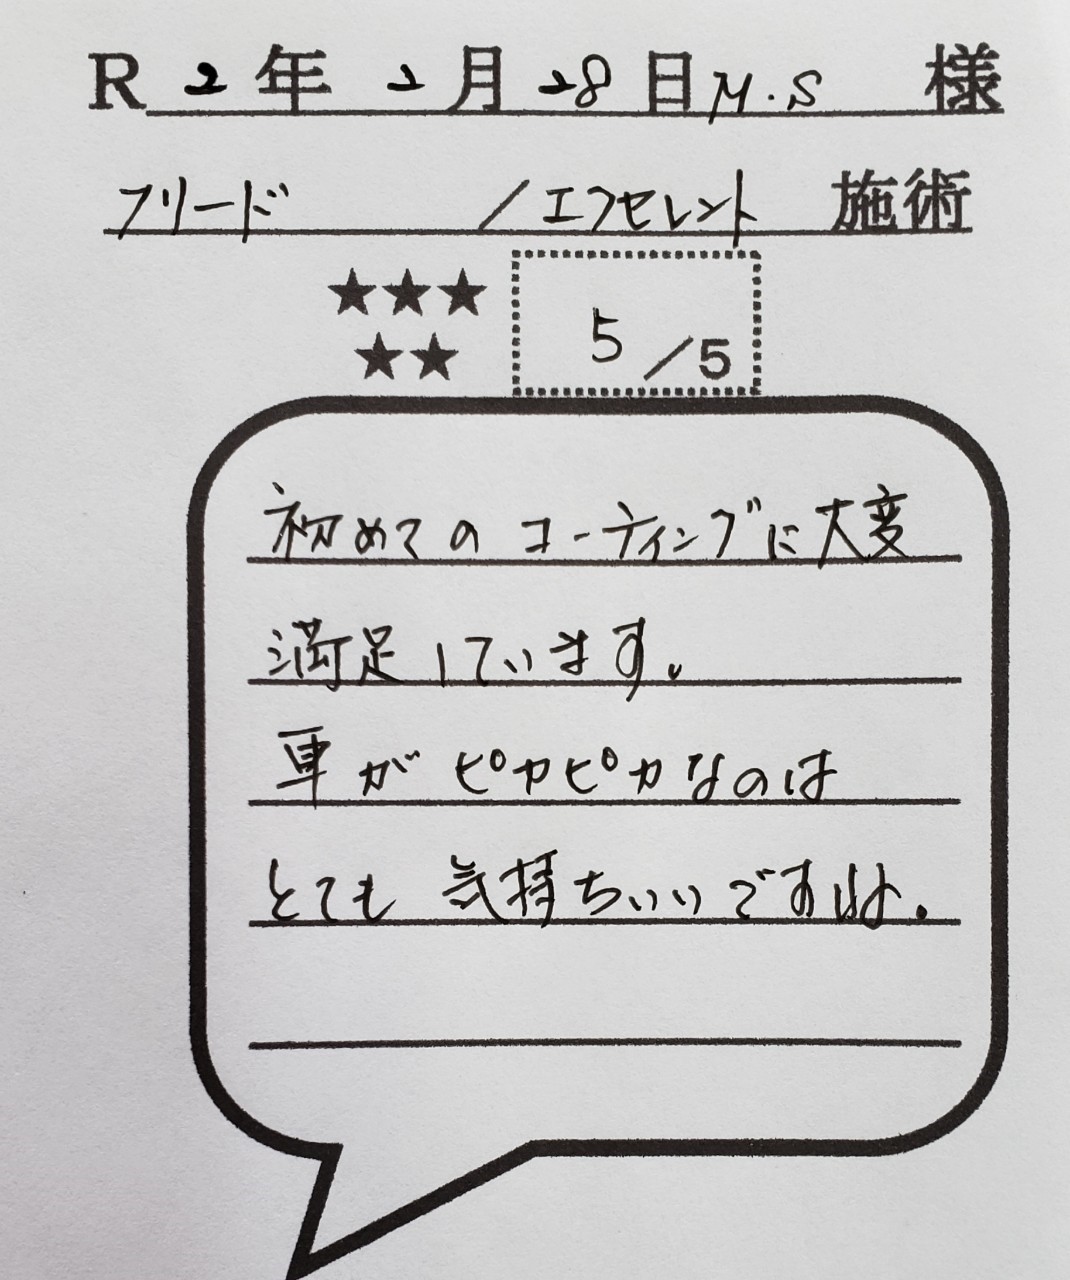 R 2年 2月28日 M.S 様
フリード /エクセレント 施術
★★★
★★
5/5
初めてのコーティングに大変
満足しています。
車がピカピカなのは
とても気持ちいいですね。